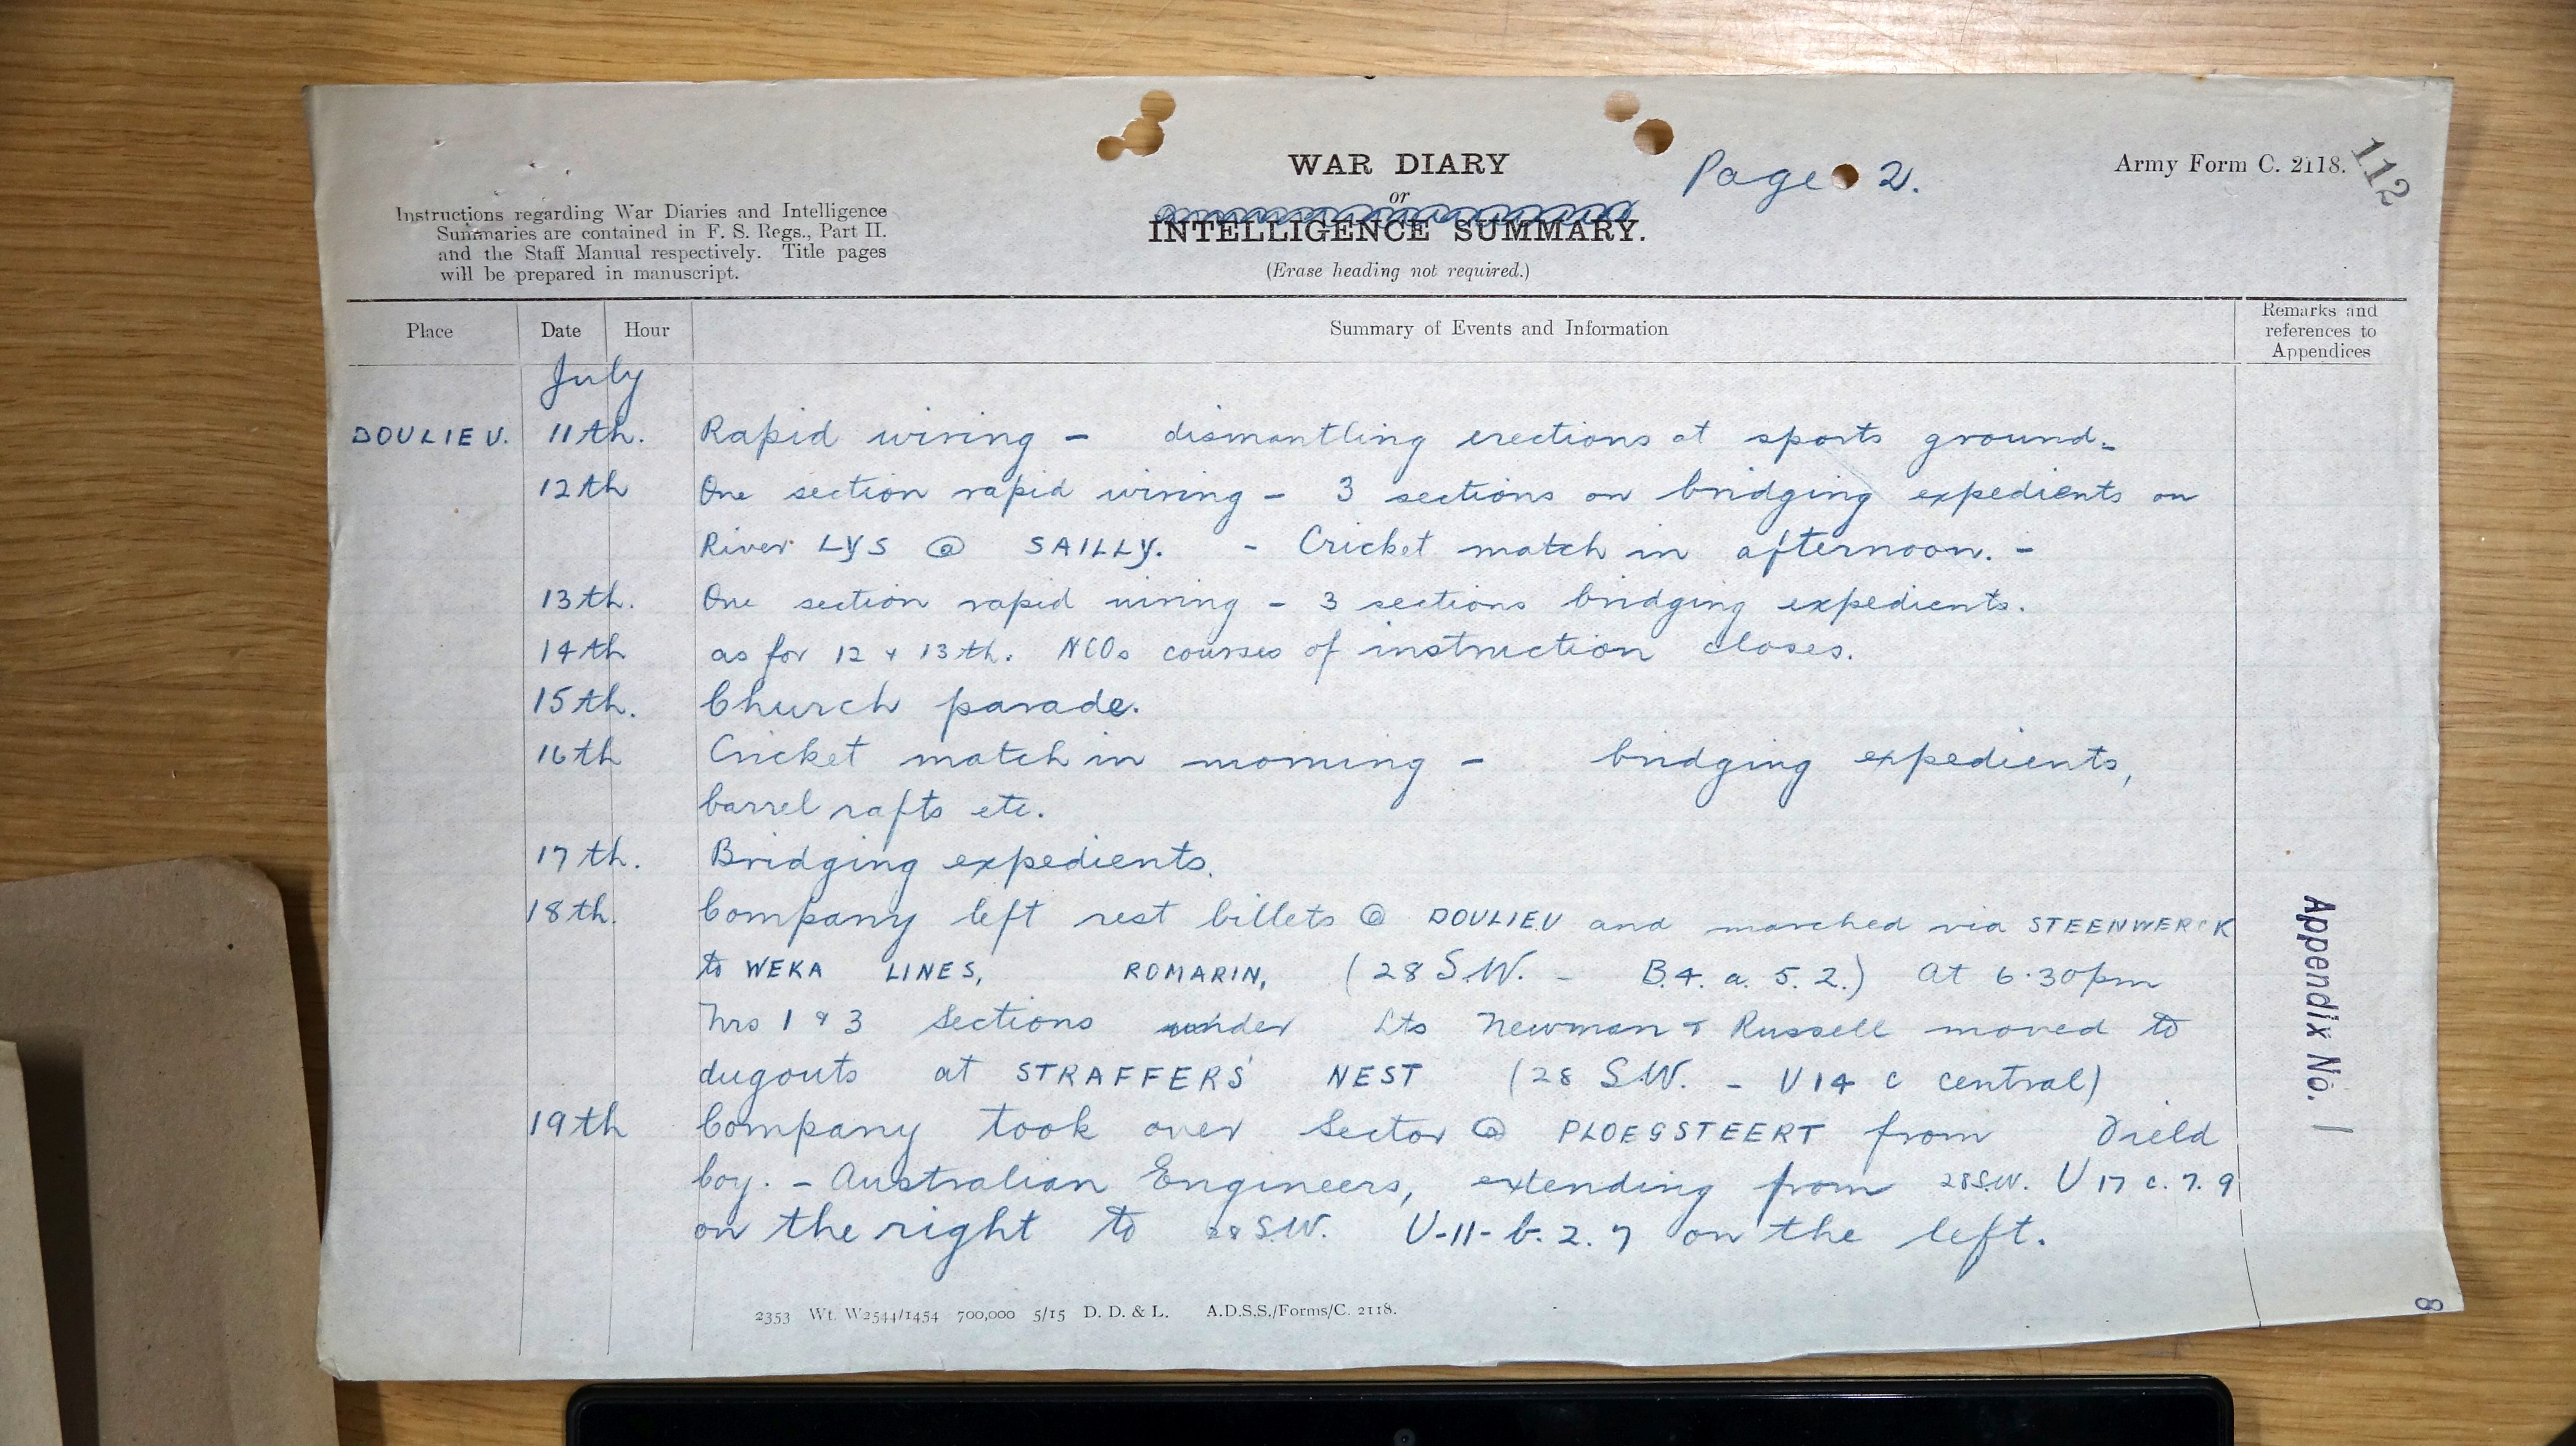 WAR DIARY
or
INTELLIGENCE SUMMARY.
(Erase heading not required.)
Page 2.
Army Form C. 2118.
112
Instructions regarding War Diaries and Intelligence
Summaries are contained in F. S. Regs., Part II.
and the Staff Manual respectively. Title pages
will be prepared in manuscript.
Place Date Hour Summary of Events and Information Remarks and references to Appendices
July
DOULIEU. 11th. Rapid wiring - dismantling erections at sports ground.
12th One section rapid wiring - 3 sections on bridging expedients on
River LYS @ SAILLY. - Cricket match in afternoon. -
13th. One section rapid wiring - 3 sections bridging expedients.
14th as for 12 & 13th. NCOs courses of instruction closes.
15th. Church parade.
16th Cricket match in morning - bridging expedients,
barrel rafts etc.
17th. Bridging expedients.
18th. Company left rest billets @ DOULIEU and marched via STEENWERCK
to WEKA LINES, ROMARIN, (28 S.W. - B.4. a. 5. 2.) At 6.30pm
Nrs 1 & 3 Sections under Lts Newman & Russell moved to
dugouts at STRAFFERS' NEST (28 S.W. - U14 c central)
19th Company took over Sector @ PLOEGSTEERT from Field
Coy. - Australian Engineers, extending from 28 S.W. U 17 c. 7. 9
on the right to 28 S.W. U-11-b. 2. 7 on the left.
Appendix No. 1
2353 Wt. W2544/1454 700,000 5/15 D. D. & L. A.D.S.S./Forms/C. 2118.
8